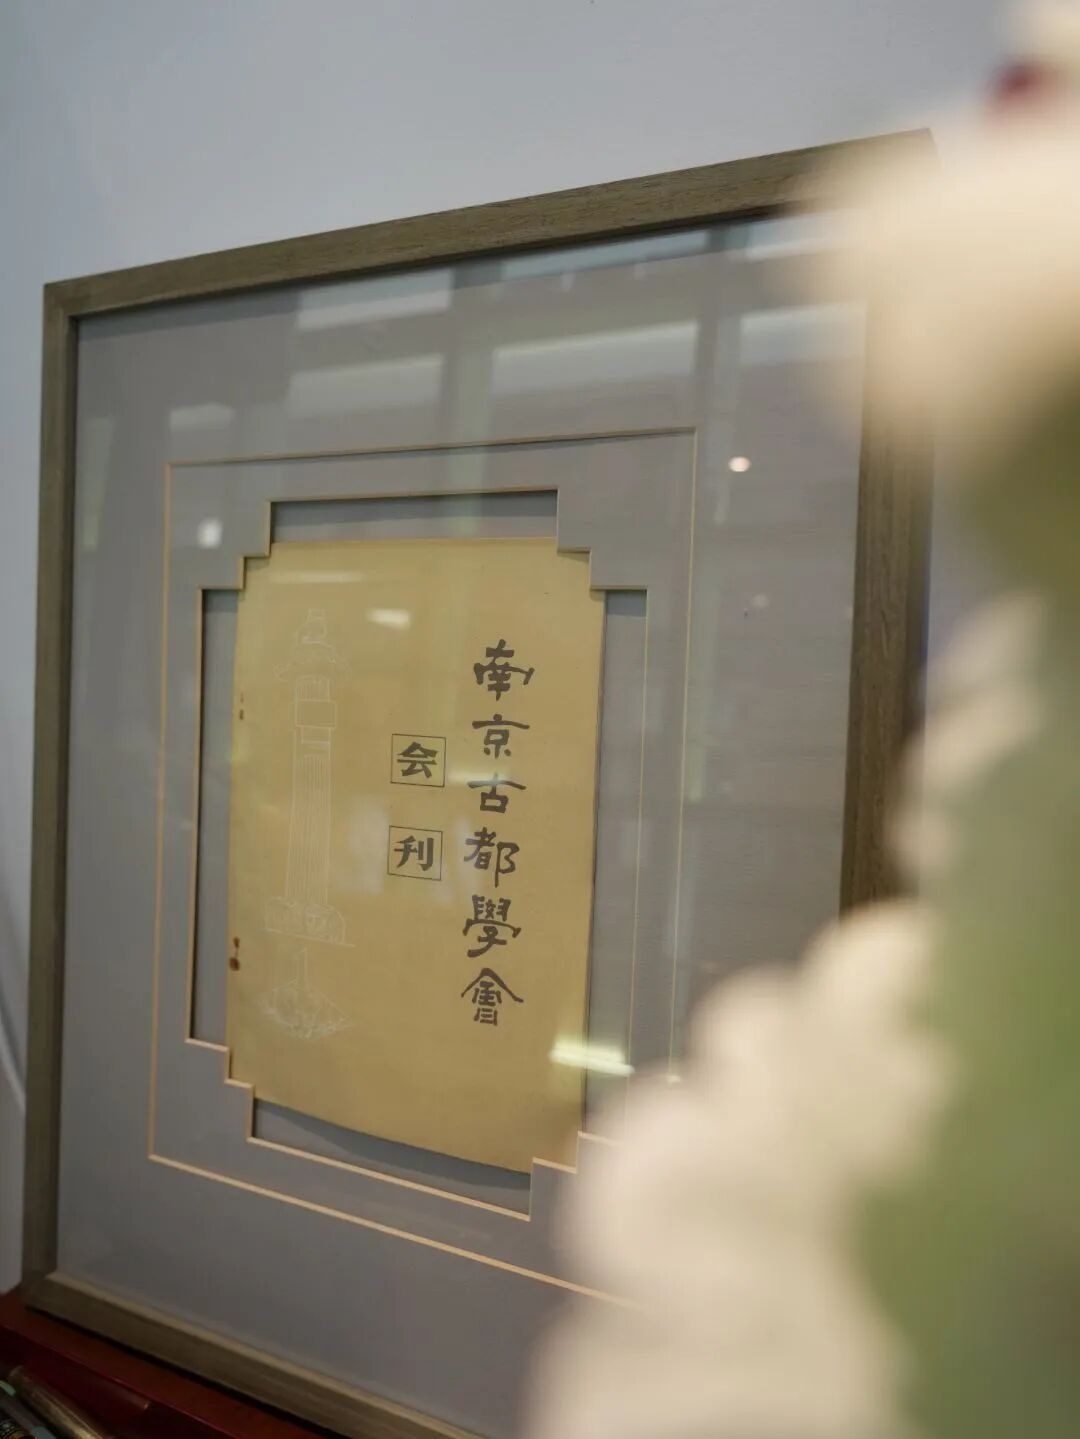 南京古都學會
会刊